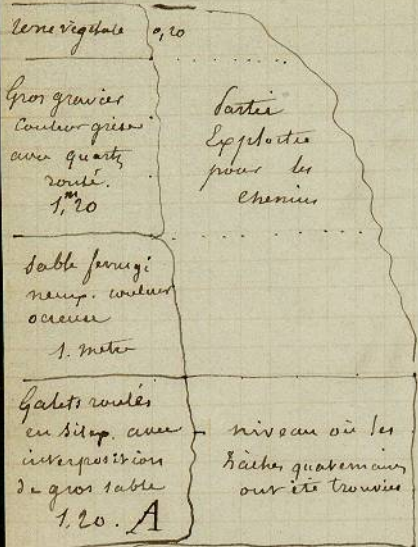 Terre végétale 0,20
Gros gravier
couleur grise
avec quartz
roulé.
1,m20
Partie
Exploitée
pour les
chemins
Sable ferrugi
neux. couleur
ocreuse
1. mètre
Galets roulés
en Silex. avec
interposition
de gros sable
1,20. A
niveau où les
haches quaternaires
ont été trouvées